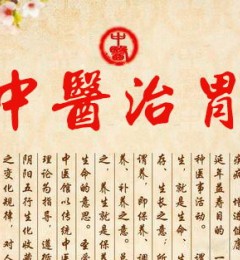 中醫
中醫治胃
增进健康
延年益寿目的一
种医事活动。
生,就是生命、
存、生长之意;
谓养,即保养、调
养、补养之意。
之,养生就是保养
生命的意思。圣
中医馆以传统中
理论为指导,遵循
阴阳五行生化收藏
之变化规律,对人